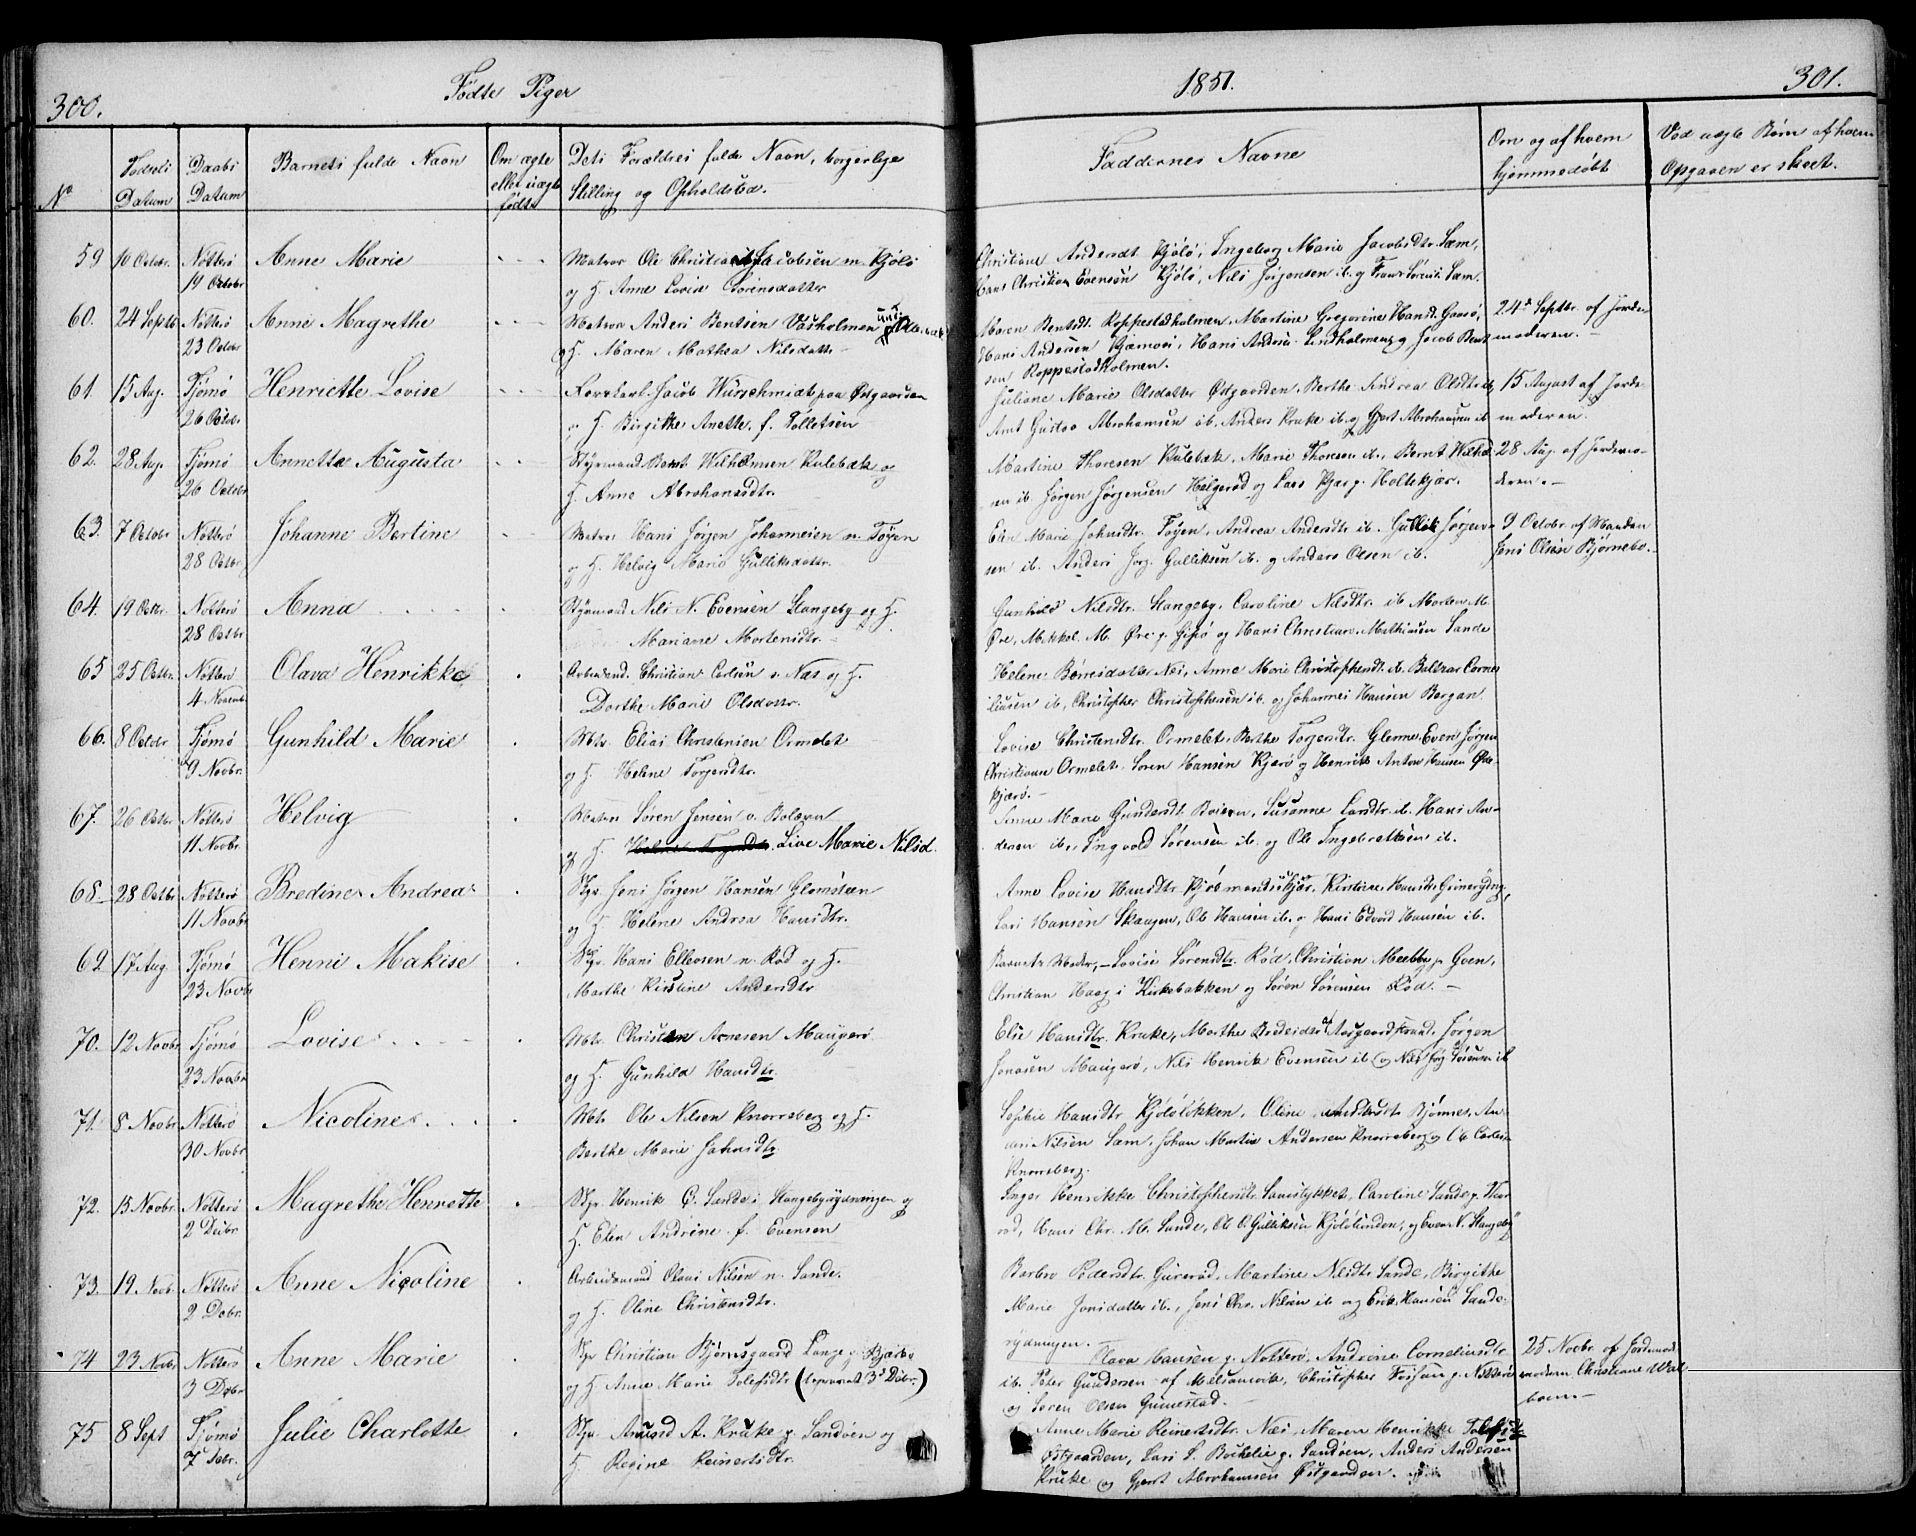 300.
Fødte Piger
1851.
301.
No
Fødsels Datum
Daabs Datum
Barnets fulde Navn
Om ægte eller uægte født
Dets Forældres fulde Navn, borgerlige Stilling og Opholdsted.
Faddernes Navne
Om og af hvem hjemmedøbt
Ved uægte Børn af hvem Opgaven er skeet.
59 10 Octobr. Nøtterø Anne Marie - - - Matros Ole Christian Jacobsen n. Kjøle
19 Octobr og H. Anne Lovise Sørensdatter
Christiane Andersdt. Kjølø, Ingeborg Marie Jacobsdtr. Sem,
Hans Christian Evensen Kjølø, Nils Jørgensen ib. og Frans Sørens. Sem.
60. 24 Septb Nøtterø Anne Magrethe - - - Matros Anders Bentsen Vasholmen
23 Octbr og H. Maren Mathea Nilsdattr
Maren Bentsdt. Roppestadholmen, Martine Gregorine Hansd. Gaasø,
Hans Andersen Hans Andrs. Lindholmen og Jacob Bent-
sen Roppestadholmen.
24d Septbr af Jorde-
moderen.
61. 15 Aug. Tjømø Henriette Lovise - - - Jacob Wurschmidt paa Østgaarden
26 Octbr og H. Birgitte Anette f. Tollefsen
Juliane Marie Olsdatter Østgaarden, Berthe Andrea Olsdtr ib
Amt Gustav Abrahamsen ib. Anders Kruke ib. og Gjert Abrahamsen ib
15 August af Jorde-
moderen.
62. 28 Aug. Tjømø Annette Augusta - - Styrmand Bernt Wilhelmsen Kulebæk og
26 Octobr H. Anne Abrahamsdtr.
Martine Thoresen Kulebæk, Marie Thoresen ib., Bernt Wilh.
en ib. Jørgen Jørgensen Helgerød og Lars Kjær g. Holtekjær.
28 Aug. af Jordemo-
deren. -
63. 7 Octobr Nøtterø Johanne Bertine - - Matros Hans Jørgen Johannesen n. Føyen
28 Octbr. og H. Helvig Marie Gulliksdattr.
Elen Marie Johnsdtr. Føyen, Andrea Andersdtr ib. Gullik Jørgen-
sen ib. Anders Jørg. Gulliksen ib. og Anders Olsen ib.
9 Octobr. af Manden
Jens Olsen Bjørnebo.
64. 19 Octbr. Nøtterø Anna - - - Styrmand Nils N. Evensen Stangeby og H.
28 Octbr Mariane Mortensdtr.
Gunhild Nilsdtr. Stangeby, Caroline Nilsdtr. ib Morten M.
Øre, M. Øre g. Gipø og Hans Christian Mathiasen Sande
65 25 Octbr. Nøtterø Olava Henrikke . Arbmand. Christian Carlsen v. Næs og H.
4 Novemb. Dorthe Marie Olsdattr.
Helene Børresdatter Næs, Anne Marie Christophersdt. ib. Baltzar Corne-
liusen ib, Christopher Christophersen ib. og Johannes Hansen Bergan
66. 8 Octobr Tjømø Gunhild Marie . Mtr. Elias Christensen Ormelet
9 Novbr. og H. Helene Torgersdtr.
Lovise Christensdtr. Ormelet, Berthe Torgersdtr. Glenne, Even Jørgen
Christiansen Ormelet, Søren Hansen Kjærø og Henrik Anton Hansen Øde-
kjærø.
67. 26 Octbr Nøtterø Helvig . Matros Søren Jensen v. Bolæren
11 Novbr. og H. Live Marie Nilsd.
Anne Marie Gundersdt. Bolæren, Susanne Larsdtr. ib. Hans An-
dersen ib., Ingvold Sørensen ib. og Ole Ingebretsen ib.
68. 28 Octbr Nøtterø Bredine Andrea . Skpr. Jens Jørgen Hansen Glomsteen
11 Novbr og H. Helene Andrea Hansdtr.
Anne Lovise Hansdtr. Kjøbmandskjær, Kirstine Hansdtr Grimsrydng,
Lars Hansen Skaugen, Ole Hansen ib. og Hans Edvard Hansen ib.
69 17 Aug. Tjømø Henni Makise . Skpr. Hans Ellevsen n. Rød og H.
23 Novbr Marthe Kirstine Andersdtr
Barnets Moder, - Lovise Sørensdtr. Rød, Christian Meebbye g. Goen,
Christian Haag i Kirkebakken og Søren Sørensen Rød. -
70. 12 Novbr Tjømø Lovise - - - Mtr. Christen Arnesen Maugerø
23 Novbr og H. Gunhild Hansdtr.
Elise Hansdtr. Kruke, Marthe Aasgaardstrand, Jørgen
Jonasen Maugerø, Nils Henrik Evensen ib og Nils Jørg Sørensen ib
71. 8 Novbr Nøtterø Nicoline - - - Mtr. Ole Nilsen Knorresberg og H.
30 Novbr Berthe Marie Jahnsdtr.
Sophie Hansdtr Kjøløløkken, Oline Andersdt. Bjønnes, An-
ders Nilsen Sem, Johan Martin Andersen Knorreberg og Ole Carlsen
Knorreberg.
72. 15 Novbr Nøtterø Magrethe Henrette . Skpr. Henrik C. Sande i Stangebyrydningen og
2 Decbr H. Elen Andrine f. Evensen
Inger Henrikke Christophersdtr. Sandstykket, Caroline Sande
rød, Hans Chr. M. Sande, Ole O. Gulliksen Kjølølinden, og Even N. Stangeby
73. 19 Novb. Nøtterø Anne Nicoline . Arbeidsmand Olaus Nilsen n. Sande.
2 Debr. og H. Oline Christensdtr.
Barbro Pedersdtr. Gurerød, Martine Nilsdtr Sande, Birgithe
Marie Jonsdatter ib., Jens Chr. Nilsen ib og Erik Hansen Sande-
rydningen.
74 23 Novbr Nøtterø Anne Marie . Skpr Christian Bjørnsgaard Lange g. Bjærbo
3 Debr og H. Anne Marie Tolefsdtr (separeret 3d Debr.)
Olava Hansen g. Nøtterø, Andrine Corneliusdtr
ib. Peter Gundersen af Melsomvik, Christopher Foshan g. Nøtterø
og Søren Olsen Gunnestad. -
25 Novbr. af Jordemod-
moderen Christiane Wal-
boem. -
75 8 Sept Tjømø Julie Charlotte . Skpr. Amund A. Kruke g. Sandøen og
7 Debr. H. Regine Reinertsdtr.
Anne Marie Reinertsdtr. Næs, Maren Henrikke Tolefsdtr
Østgaarden, Lars L. Bockelie g. Sandøen, Anders Andersen
Kruke og Gjert Abrahamsen Østgaarden.